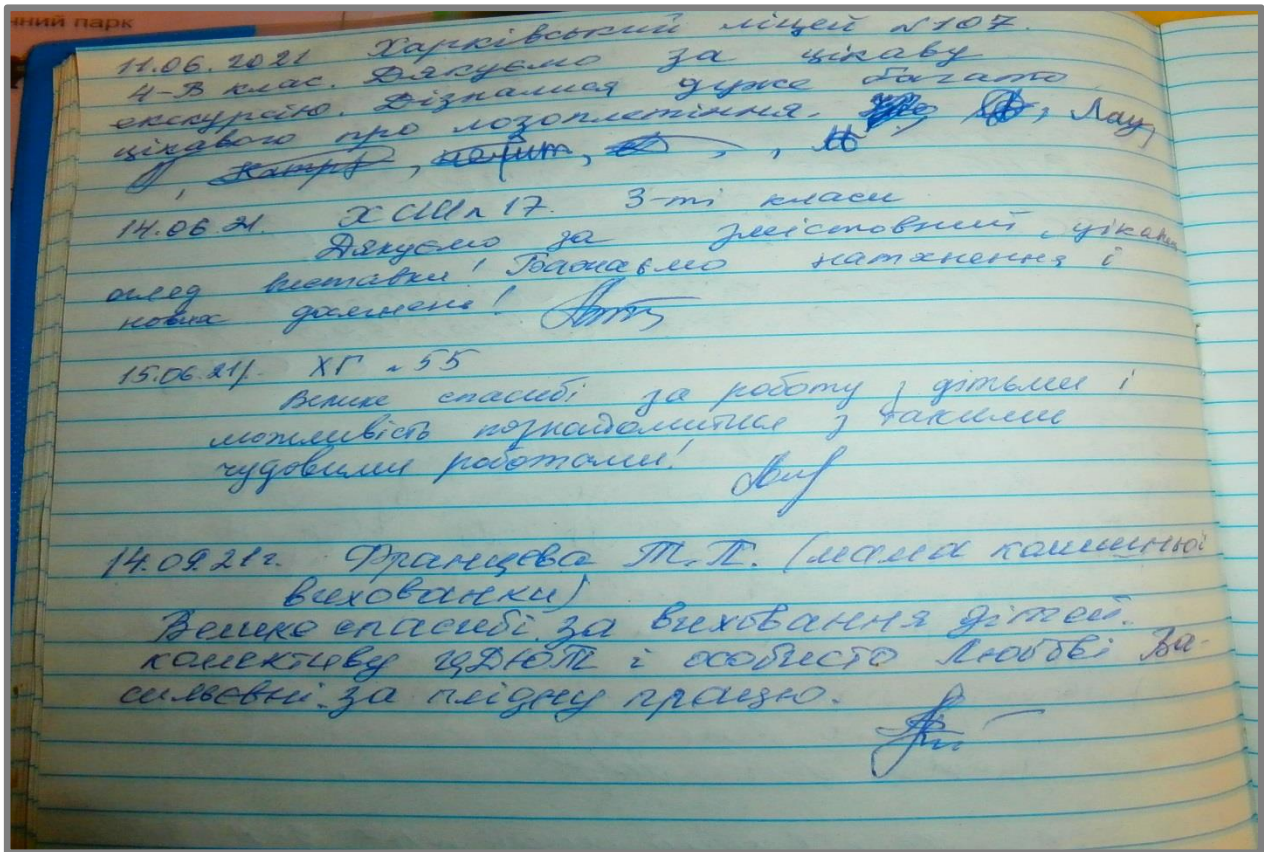 нний парк
11.06.2021 Харківський ліцей №107.
4-В клас. Дякуємо за цікаву
екскурсію. Дізналися дуже багато
цікавого про лозоплетіння. Лау
14.06.21. ХСШ №17. 3-ті класи
Дякуємо за змістовний, цікавий
огляд виставки! Бажаємо натхнення і
нових досягнень!
15.06.21р. ХГ №55
Велике спасибі за роботу з дітьми і
можливість познайомитися з такими
чудовими роботами!
14.09.21г. Францева Т.П. (мама колишньої
вихованки)
Велике спасибі за виховання дітей.
колективу ЦДЮТ і особисто Любові Ва-
сильевні за плідну працю.